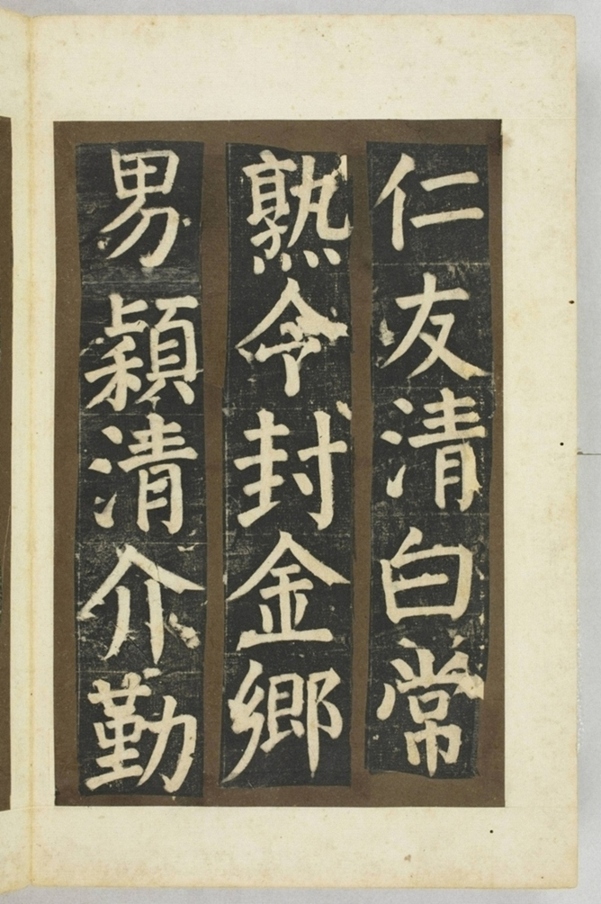 仁友清白常
熟令封金鄉
男穎清介勤